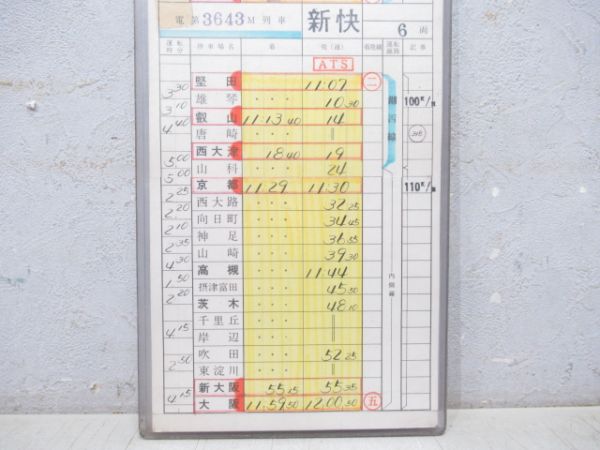 電 第3643M列車 新快 6両
運転時分 停車場名 着 発(通) 着発線 運転線路 記事
ATS
堅田 11:07 二
3 30 雄琴 ・・・ 10 30 100K/h
3 10 叡山 11 13 40 14 湖西線
4 40 唐崎 ・・・ ‖
西大津 18 40 19
5 00 山科 ・・・ 24
5 00 京都 11:29 11:30 110K/h
2 25 西大路 ・・・ 32 25
2 20 向日町 ・・・ 34 45
2 10 神足 ・・・ 36 55
2 35 山崎 ・・・ 39 30
4 30 高槻 ・・・ 11:44 内側線
1 50 摂津富田 ・・・ 45 50
2 20 茨木 ・・・ 48 10
千里丘 ・・・ ‖
4 15 岸辺 ・・・ ‖
吹田 ・・・ 52 25
2 50 東淀川 ・・・ ‖
新大阪 55 15 55 35
4 15 大阪 11:59 50 12:00 50 五